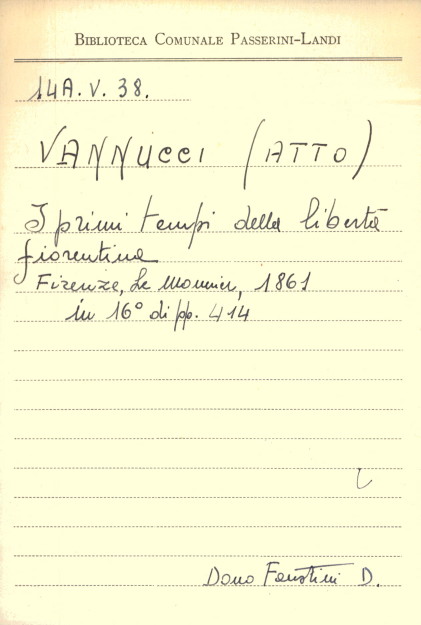 BIBLIOTECA COMUNALE PASSERINI-LANDI
14A.V.38.
VANNUCCI (ATTO)
I primi tempi della libertà
fiorentina
Firenze, Le Monnier, 1861
in 16° di pp. 414
Dono Faustini D.